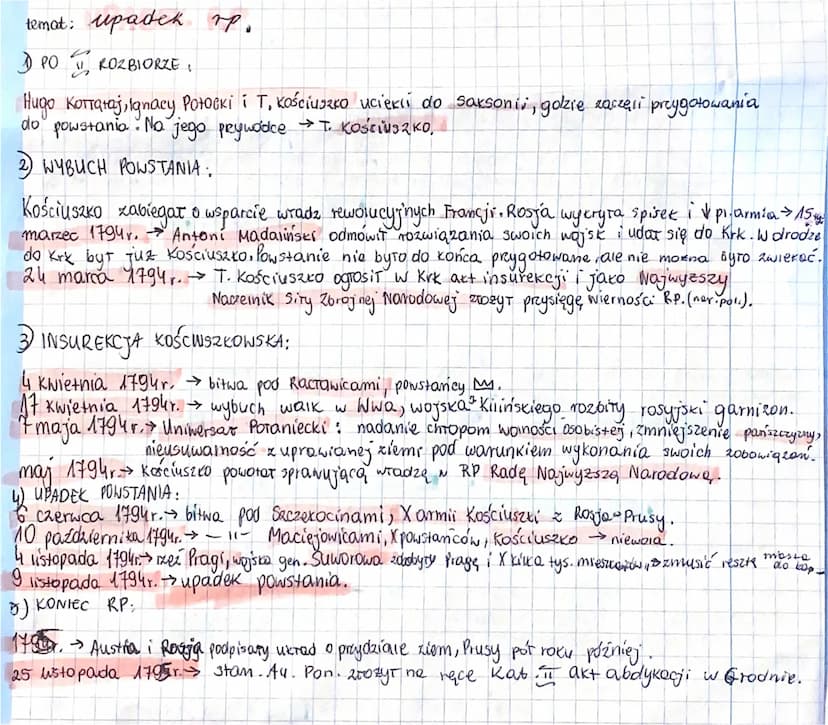 temat: upadek rp.
1) PO II ROZBIORZE:
Hugo Kołłątaj, Ignacy Potocki i T. Kościuszko uciekli do Saksonii, gdzie zaczęli przygotowania
do powstania. Na jego przywódcę → T. KOŚCIUSZKO.
2) WYBUCH POWSTANIA:
Kościuszko zabiegał o wsparcie władz rewolucyjnych Francji. Rosja wykryła spisek i ↓ pl. armia → 15
marzec 1794r. → Antoni Madaliński odmówił rozwiązania swoich wojsk i udał się do Krk. W drodze
do Krk był już Kościuszko. Powstanie nie było do końca przygotowane, ale nie można było zwlekać.
24 marca 1794r. → T. Kościuszko ogłosił w Krk akt insurekcji i jako Najwyższy
Naczelnik Siły Zbrojnej Narodowej złożył przysięgę wierności RP. (nar. pol.).
3) INSUREKCJA KOŚCIUSZKOWSKA:
4 kwietnia 1794r. → bitwa pod Racławicami, powstańcy
17 kwietnia 1794r. → wybuch walk w Wwa, wojska Kilińskiego rozbiły rosyjski garnizon.
7 maja 1794r. → Uniwersał Połaniecki: nadanie chłopom wolności osobistej, zmniejszenie pańszczyzny,
nieusuwalność z uprawianej ziemi pod warunkiem wykonania swoich zobowiązań.
maj 1794r. → Kościuszko powołał sprawującą władzę w RP Radę Najwyższą Narodową.
4) UPADEK POWSTANIA:
6 czerwca 1794r. → bitwa pod Szczekocinami, X armii Kościuszki z Rosja-Prusy.
10 października 1794r. → -||- Maciejowicami, X powstańców, Kościuszko → niewola.
4 listopada 1794r. → rzeź Pragi, wojska gen. Suworowa zdobyły Pragę i X kilka tys. mieszkańców, zmusić resztę miasta do kap-
9 listopada 1794r. → upadek powstania.
5) KONIEC RP:
1795r. → Austria i Rosja podpisały układ o przydziale ziem, Prusy pół roku później.
25 listopada 1795r. → Stan. Au. Pon. złożył na ręce Kat. II akt abdykacji w Grodnie.